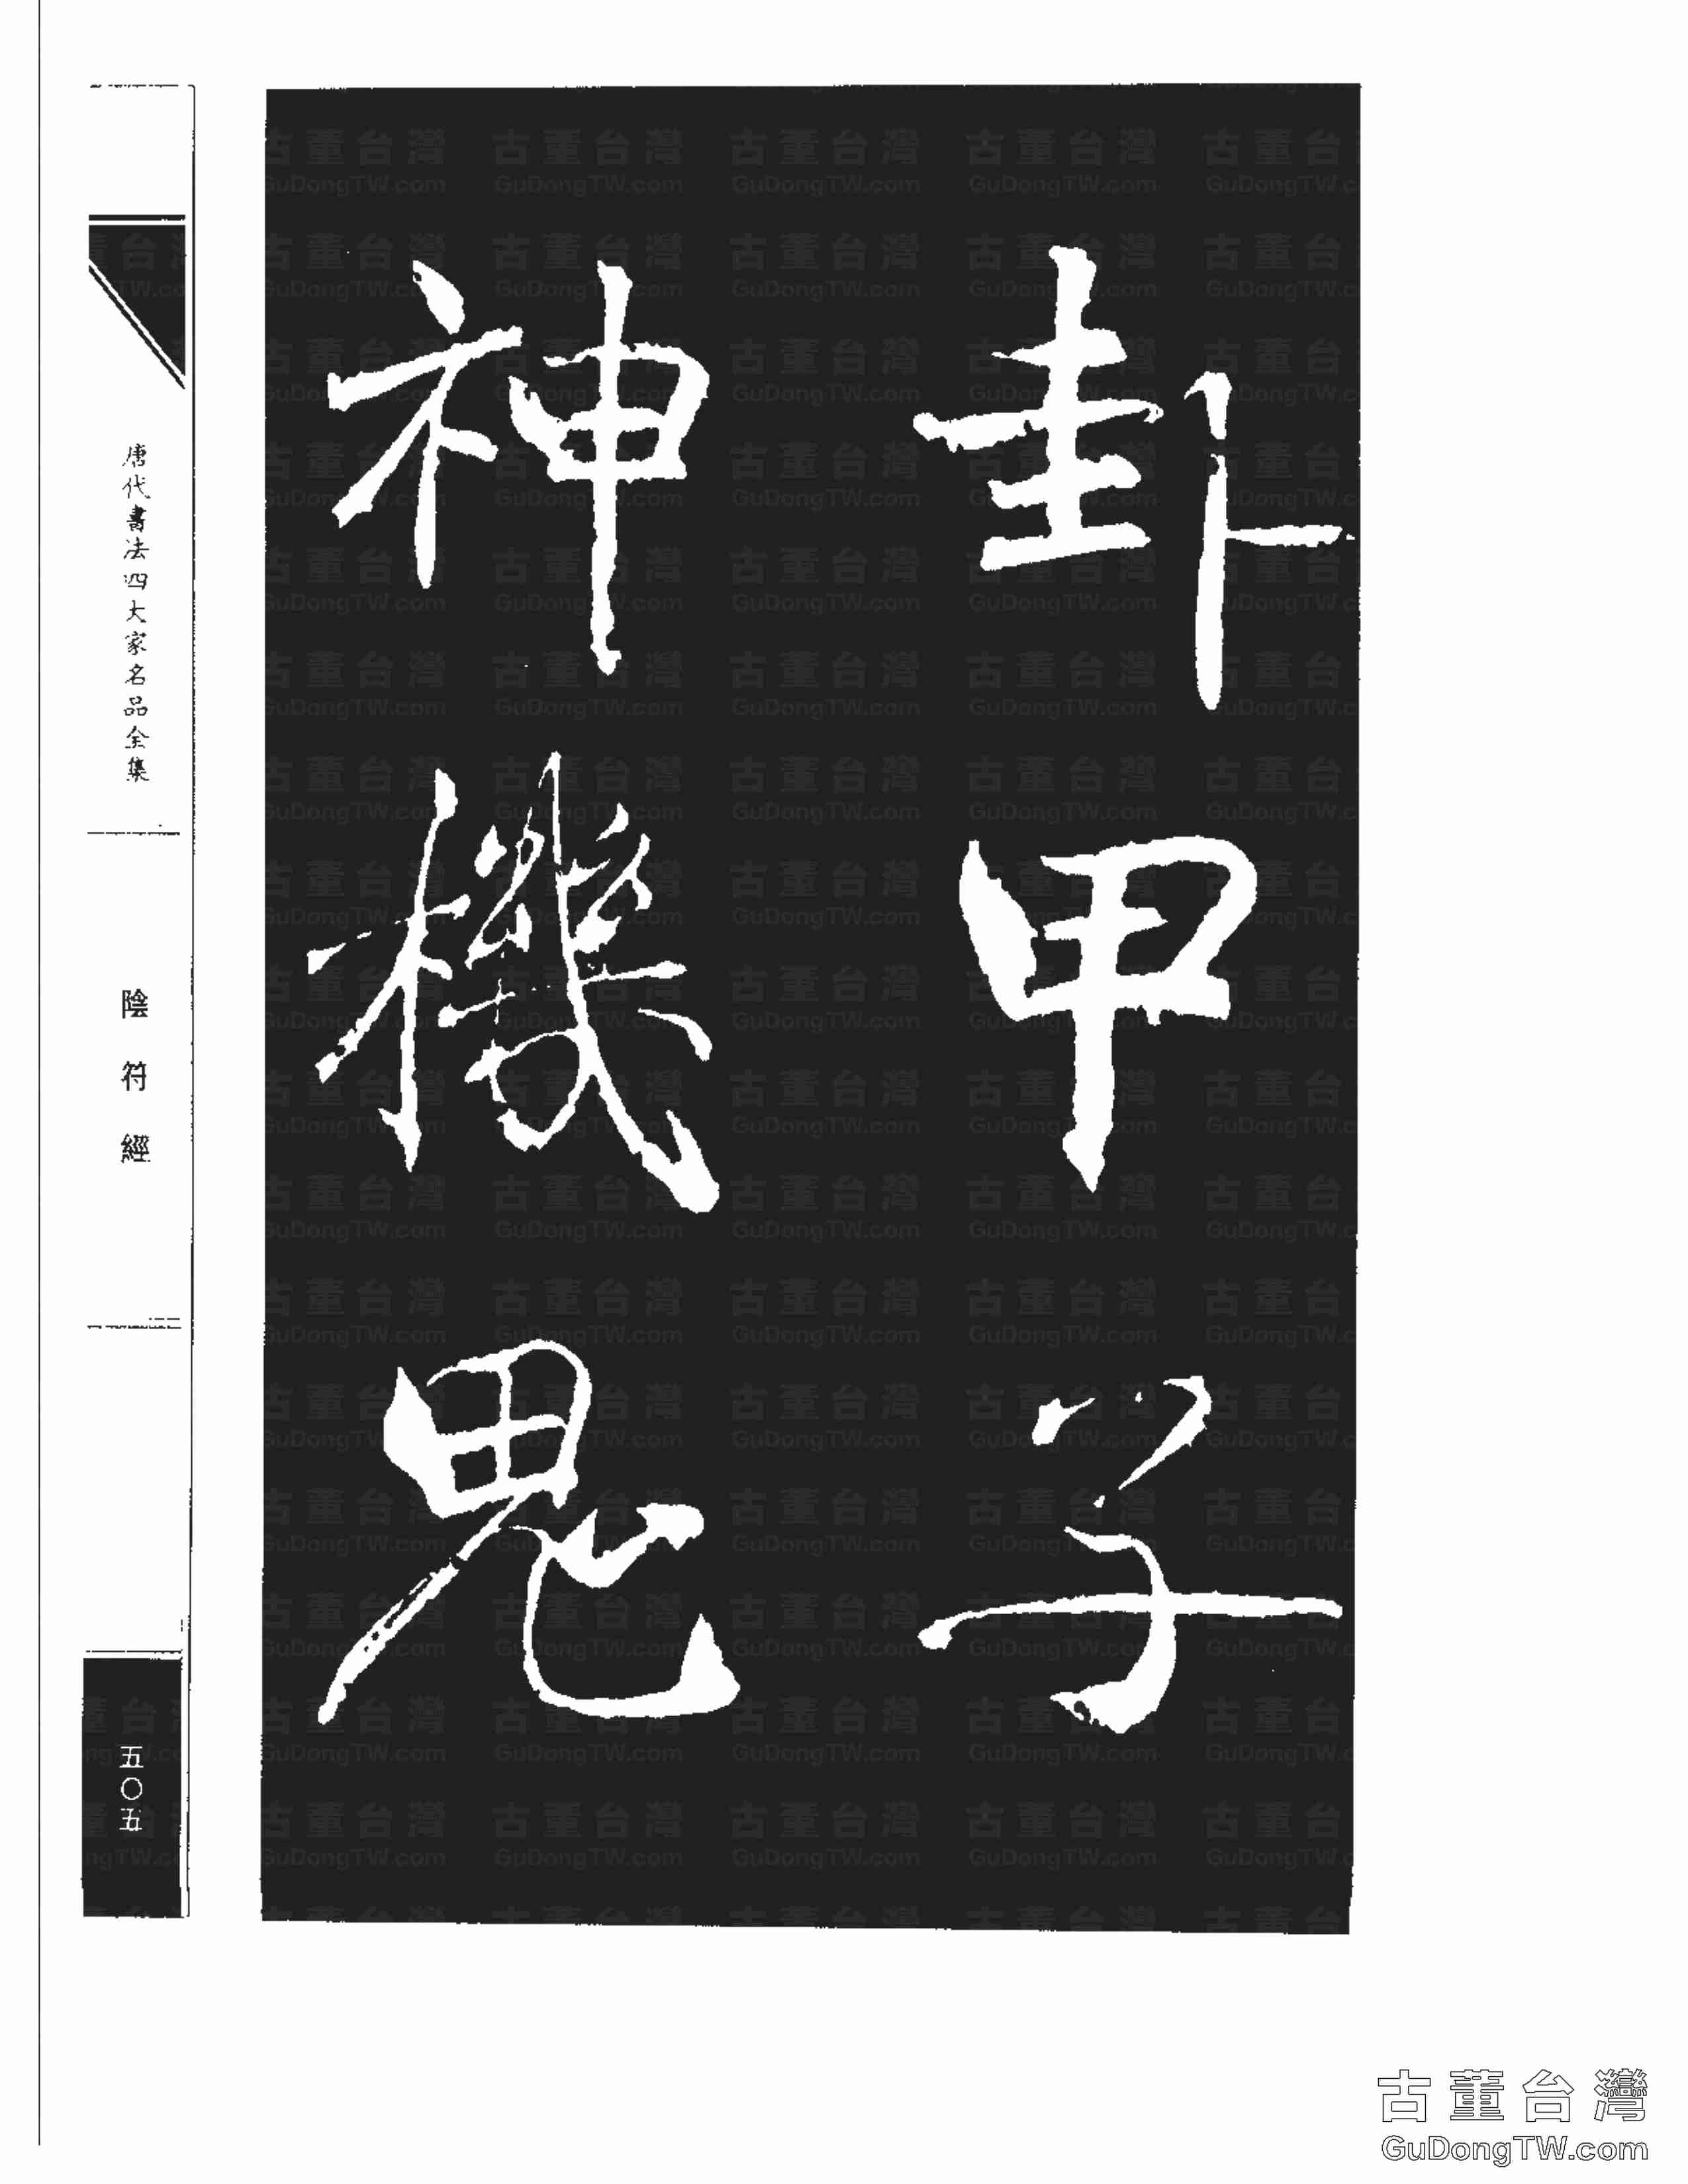 卦甲子
神機鬼
唐代書法四大家名品全集
陰符經
五〇五
古董台灣
GuDongTW.com